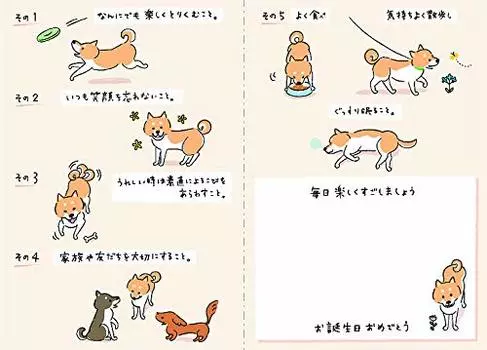 その1
なんにでも 楽しくとりくむこと。
その2
いつも笑顔を忘れないこと。
その3
うれしい時は素直によろこびを
あらわすこと。
その4
家族や友だちを大切にすること。
その5 よく食べ
気持ちよく散歩し
ぐっすり眠ること。
毎日 楽しくすごしましょう
お誕生日 おめでとう